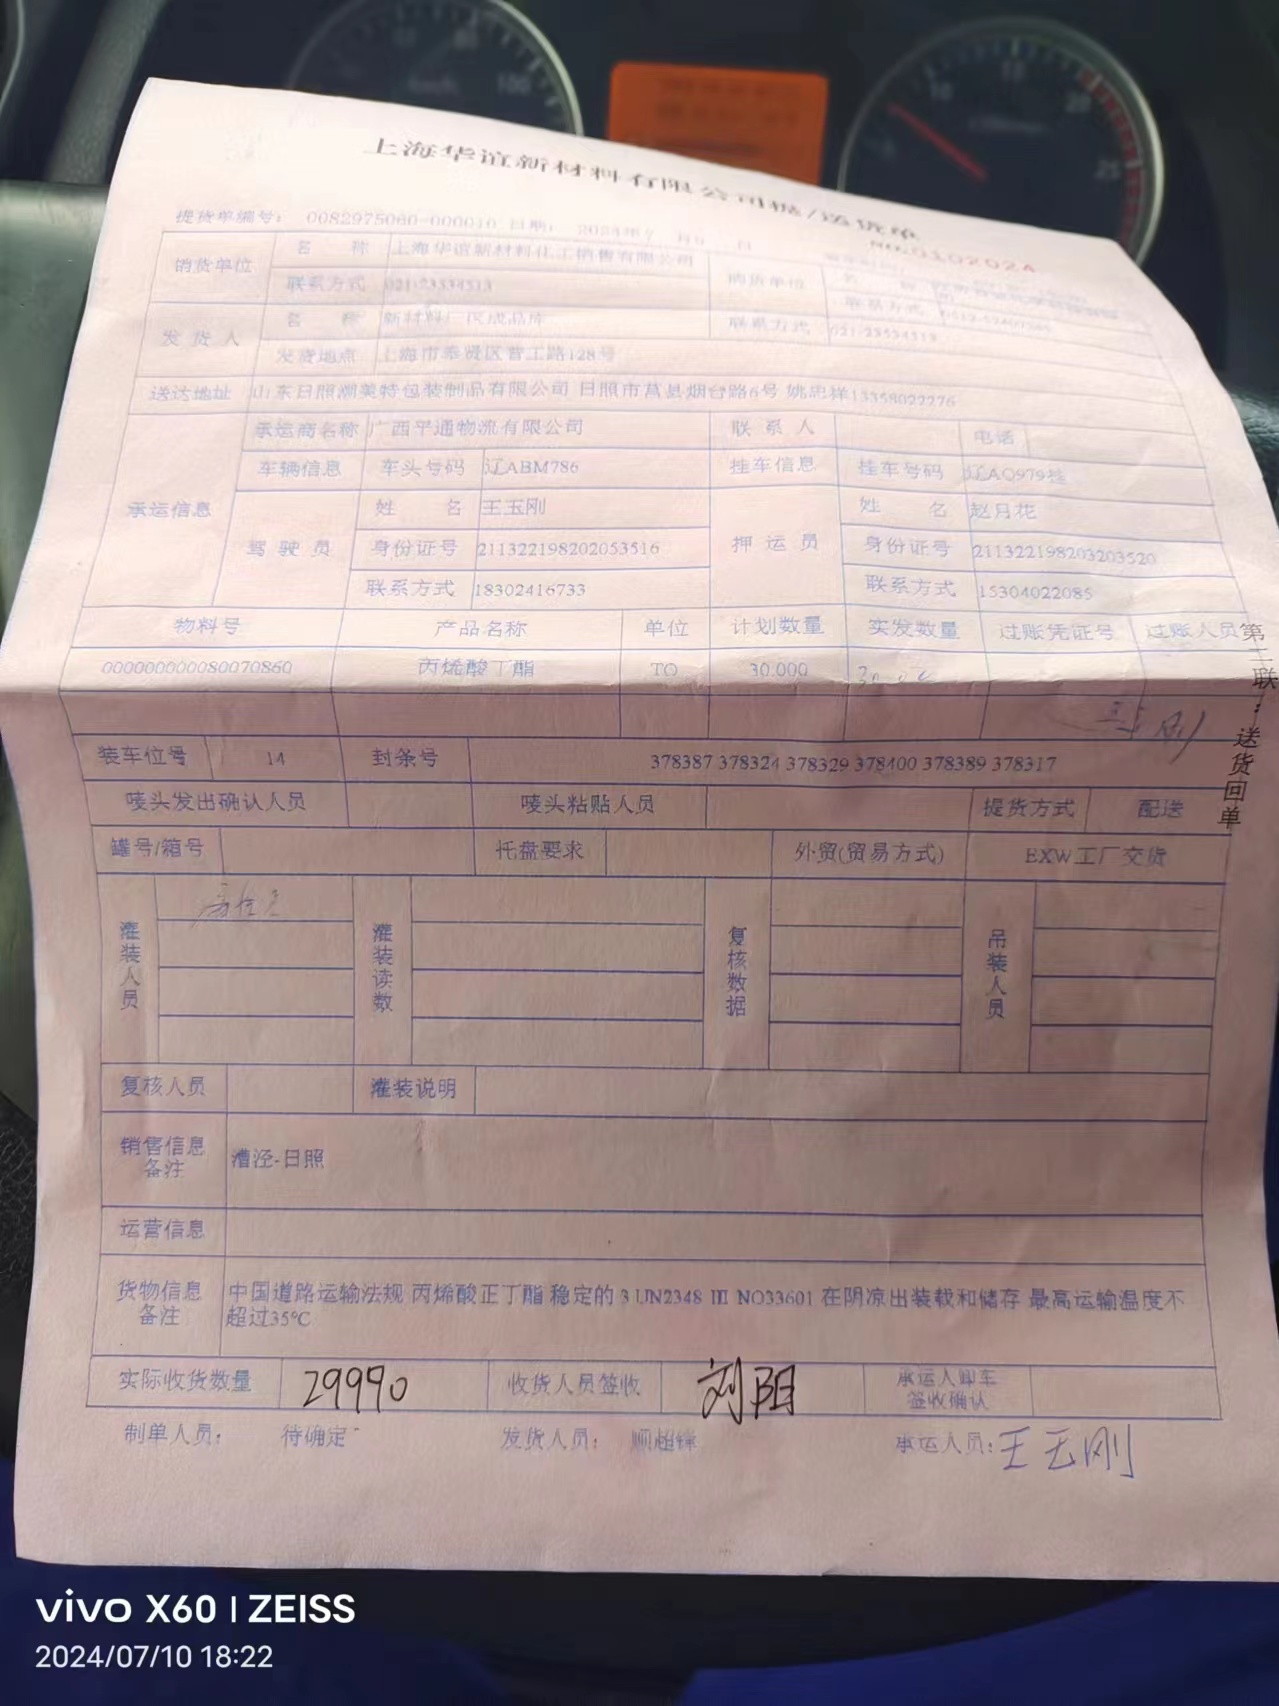 上海华谊新材料有限公司提/送货单
提货单编号： 0082975060-000010 日期： 2024年7月 日
销货单位 名 称 上海华谊新材料化工销售有限公司 购货单位 名 称
联系方式 021-23534513 联系方式
发 货 人 名 称 新材料厂区成品库 联系方式 021-23534513
发货地点 上海市奉贤区普工路128号
送达地址 山东日照潮美特包装制品有限公司 日照市莒县烟台路6号 姚忠祥13358022276
承运信息 承运商名称 广西平通物流有限公司 联 系 人 电话
车辆信息 车头号码 辽ABM786 挂车信息 挂车号码 辽AQ979挂
驾 驶 员 姓 名 王玉刚 押 运 员 姓 名 赵月花
身份证号 211322198202053516 身份证号 211322198203203520
联系方式 18302416733 联系方式 15304022085
物料号 产品名称 单位 计划数量 实发数量 过账凭证号 过账人员
000000000080070860 丙烯酸丁酯 TO 30.000
装车位号 14 封条号 378387 378324 378329 378400 378389 378317
唛头发出确认人员 唛头粘贴人员 提货方式 配送
罐号/箱号 托盘要求 外贸(贸易方式) EXW工厂交货
灌装人员 灌装读数 复核数据 吊装人员
复核人员 灌装说明
销售信息备注 漕泾-日照
运营信息
货物信息备注 中国道路运输法规 丙烯酸正丁酯 稳定的 3 UN2348 III NO33601 在阴凉出装载和储存 最高运输温度不
超过35℃
实际收货数量 29990 收货人员签收 刘阳 承运人卸车签收确认
制单人员： 待确定 发货人员： 承运人员：王玉刚
第二联：送货回单
vivo X60 | ZEISS
2024/07/10 18:22